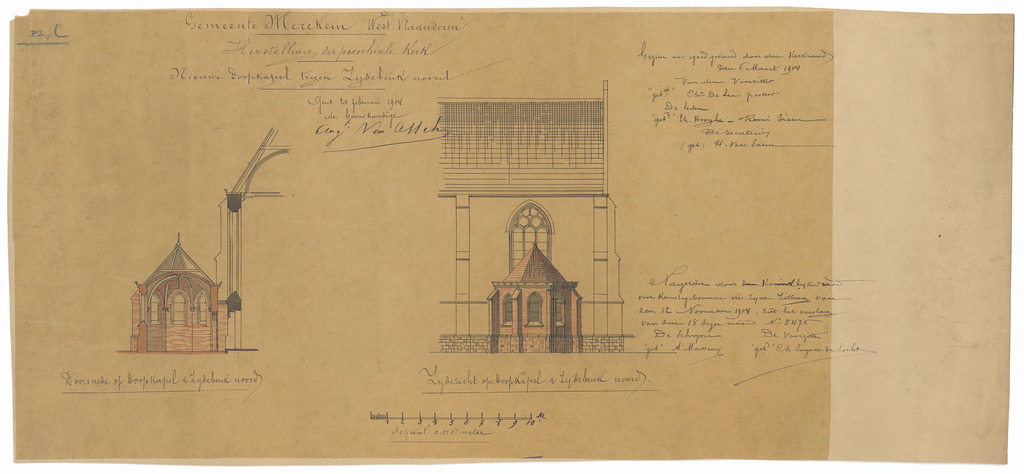 PL. C
Gemeente Merckem "West Vlaanderen"
Herstelling der parochiale Kerk
Nieuwe Doopkapel tegen Zydebeuk noord
Gent 20 februari 1904
de bouwkundige
Aug. Van Assche
Gezien en goedgekeurd door den Kerkraad
Den 6 Maart 1904
Voor den Voorzitter
"get" Ch. De pastoor
De leden
"get" Ch. Hooghe - Remi
De secretaris
(get) H. Van
Nagezien door den
voor Kunstgebouwen in zyne Zitting van
den 12 November 1904, zie het verslag
van den 18 dezer maand N° 5476
De De Voorzitter
"get" A "get" Ch.
Doorsnede op Doopkapel & Zydebeuk noord
Zydezicht op Doopkapel & Zydebeuk noord.
1 2 3 4 5 6 7 8 9 10 M
Schaal 0.01 meter